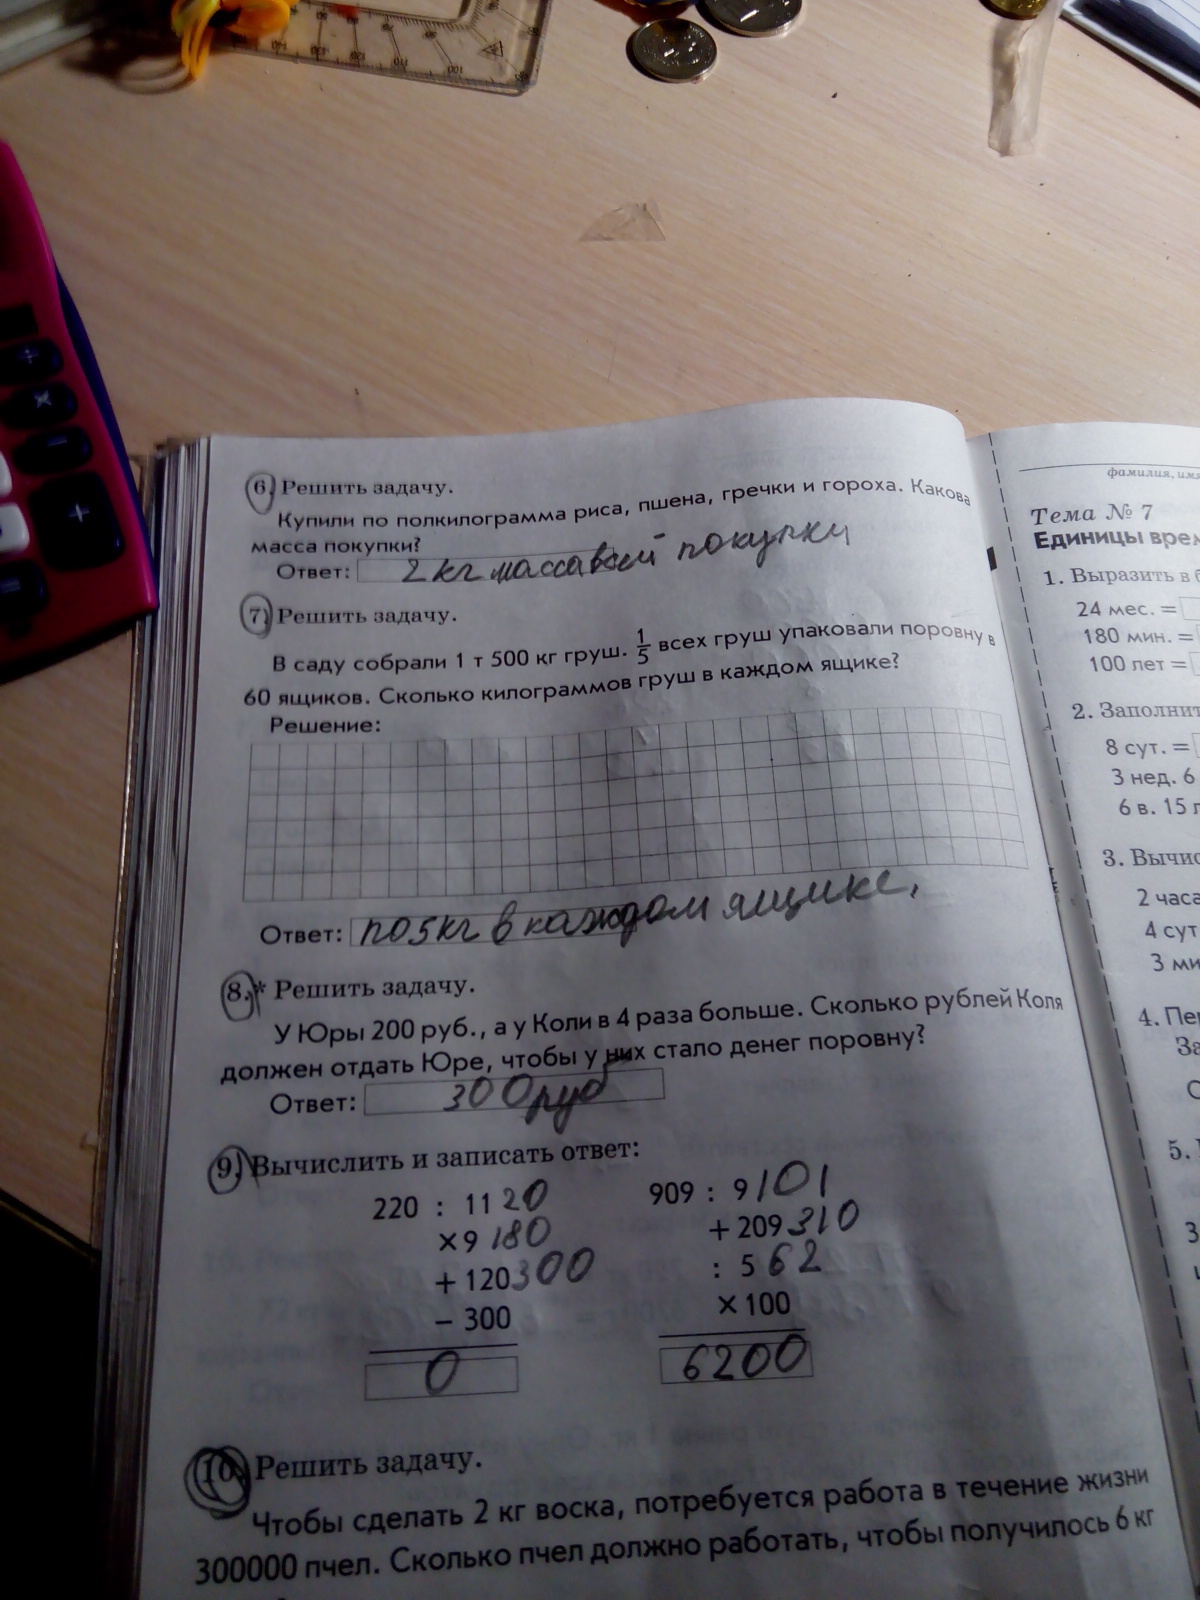 6. Решить задачу.
Купили по полкилограмма риса, пшена, гречки и гороха. Какова
масса покупки?
Ответ: 2 кг масса всей покупки
7. Решить задачу.
В саду собрали 1 т 500 кг груш. 1/5 всех груш упаковали поровну в
60 ящиков. Сколько килограммов груш в каждом ящике?
Решение:
Ответ: по 5 кг в каждом ящике.
8.* Решить задачу.
У Юры 200 руб., а у Коли в 4 раза больше. Сколько рублей Коля
должен отдать Юре, чтобы у них стало денег поровну?
Ответ: 300 руб
9. Вычислить и записать ответ:
220 : 11 20
×9 180
+ 120 300
– 300
0
909 : 9 101
+ 209 310
: 5 62
×100
6200
10. Решить задачу.
Чтобы сделать 2 кг воска, потребуется работа в течение жизни
300000 пчел. Сколько пчел должно работать, чтобы получилось 6 кг
фамилия, имя
Тема № 7
Единицы врем
1. Вырaзить в б
24 мес. =
180 мин. =
100 лет =
2. Заполнит
8 сут. =
3 нед. 6
6 в. 15 л
3. Вычис
2 часа
4 сут
3 ми
4. Пер
За
5.